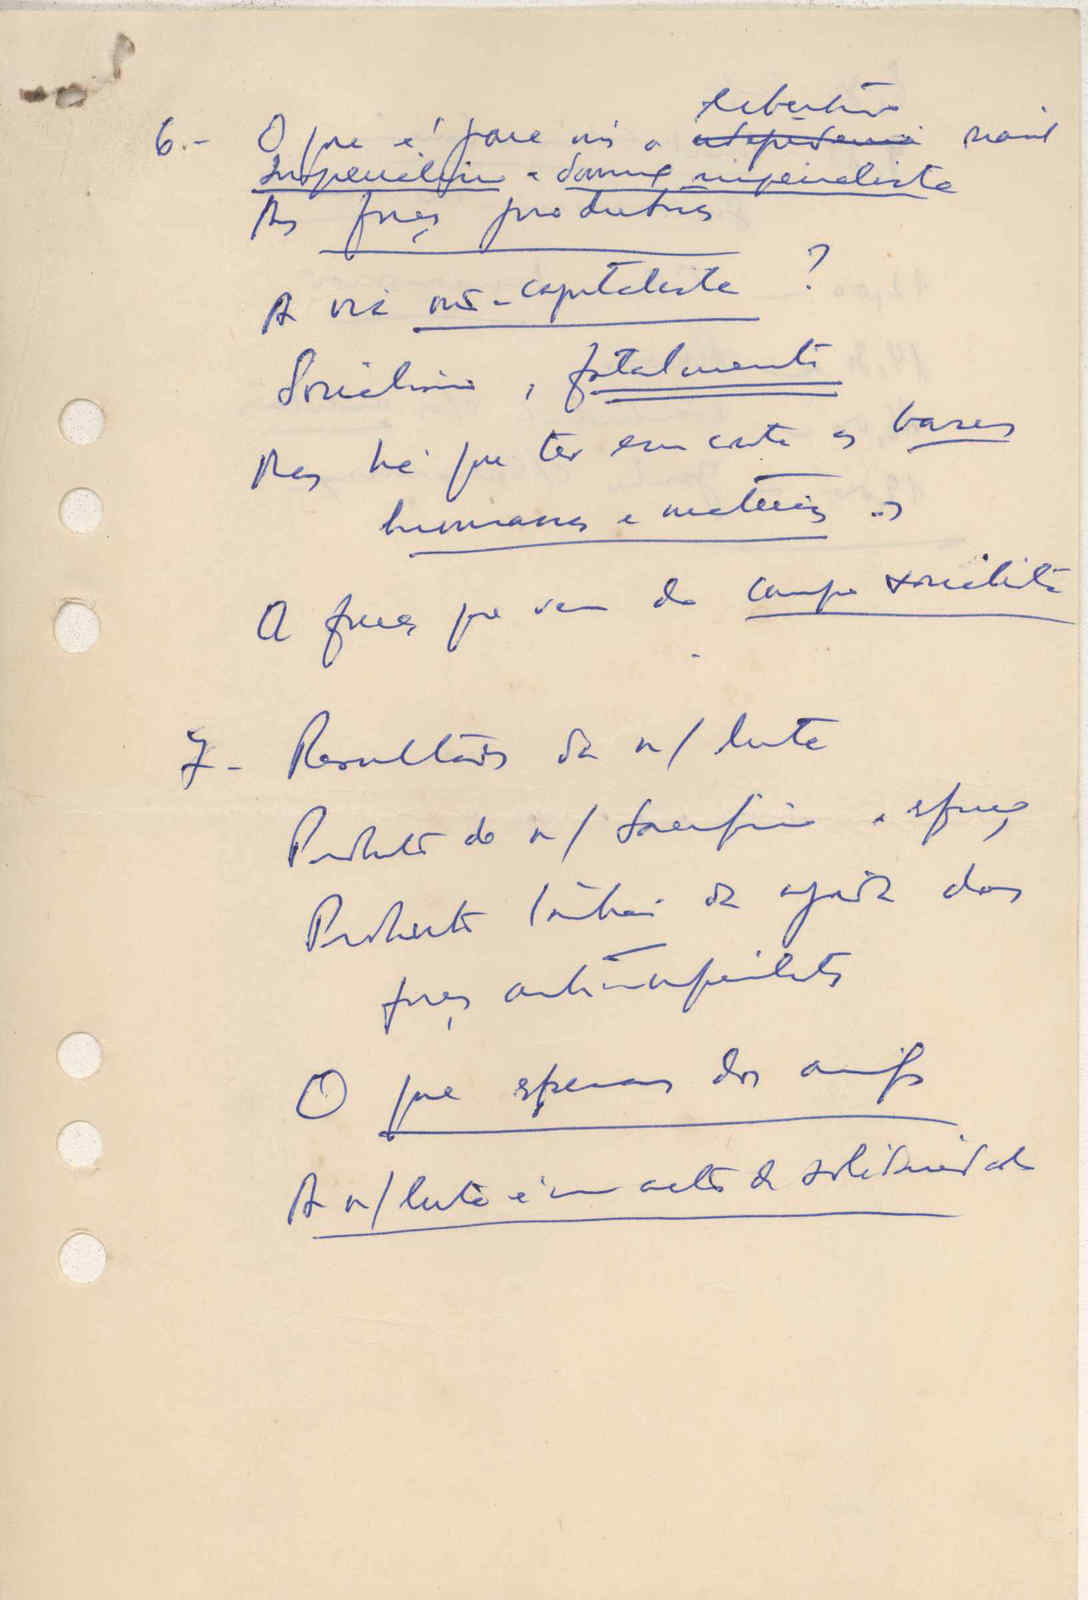 libertação
6.- O que é para nós a independência nacional
Imperialismo e domínio imperialista
As forças produtivas
A via não-capitalista ?
Socialismo, fatalmente
Mas há que ter em conta as bases
humanas e materiais
A força que vem do campo socialista
7- Resultados da n/ luta
Produto do n/ sacrifício e esforço
Produto também da ajuda das
forças antiimperialistas
O que esperamos dos amigos
A n/ luta é um acto de solidariedade